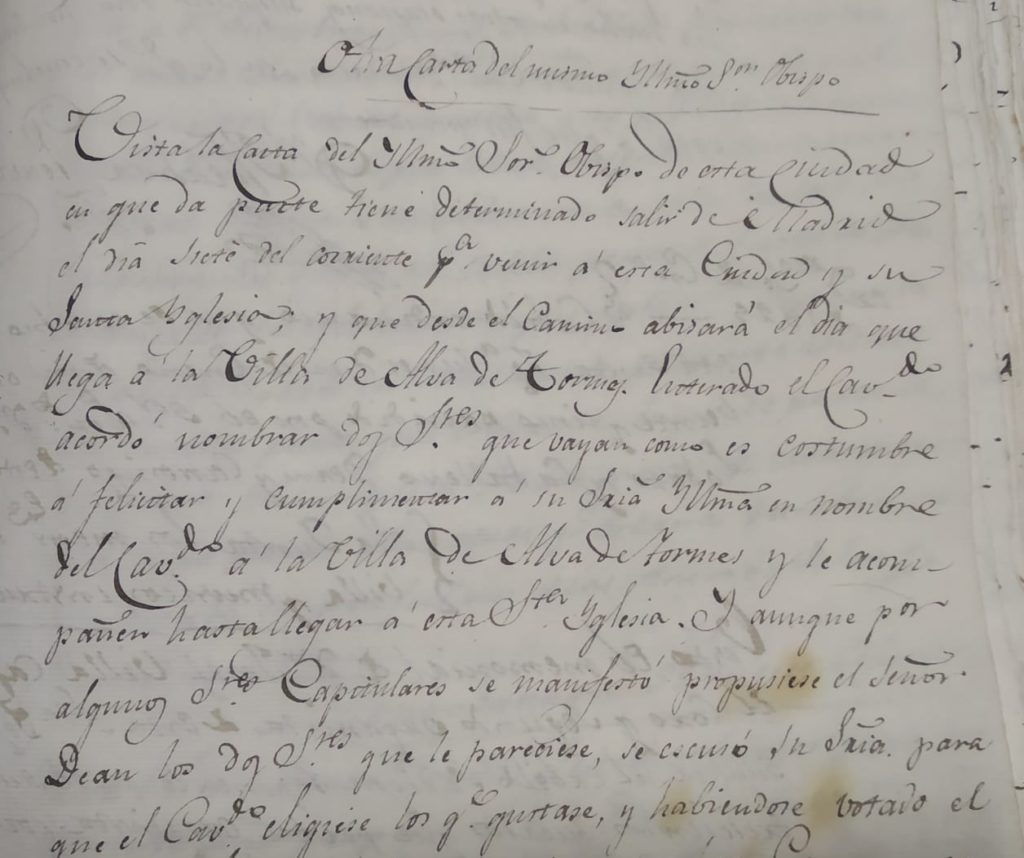 Otra Carta del mismo Yllmõ Sᵒʳ. Obispo
Vista la Carta del Yllmõ Sorᵉ. Obispo de esta Ciudad
en que da parte tiene determinado salir de Madrid
el dia siete del corriente pᵃ. venir á esta Ciudad y su
Santa Yglesia, y que desde el Camino abisará el dia que
llega á la Villa de Alva de Tormes. Enterado el Cav.ᵈᵒ
acordó nombrar dos Sʳᵉˢ. que vayan como es costumbre
á felicitar y cumplimentar á su Sriã Yllmã en nombre
del Cav.ᵈᵒ á la Villa de Alva de Tormes y le acom-
pañen hasta llegar á esta Sᵗᵃ. Yglesia. Y aunque por
algunos Sʳᵉˢ Capitulares se manifestó propusiese el Señor
Dean los dos Sʳᵉˢ que le pareciese, se escusó su Sriã. para
que el Cav.ᵈᵒ eligiese los q.ᵉ gustase, y habiendose votado el